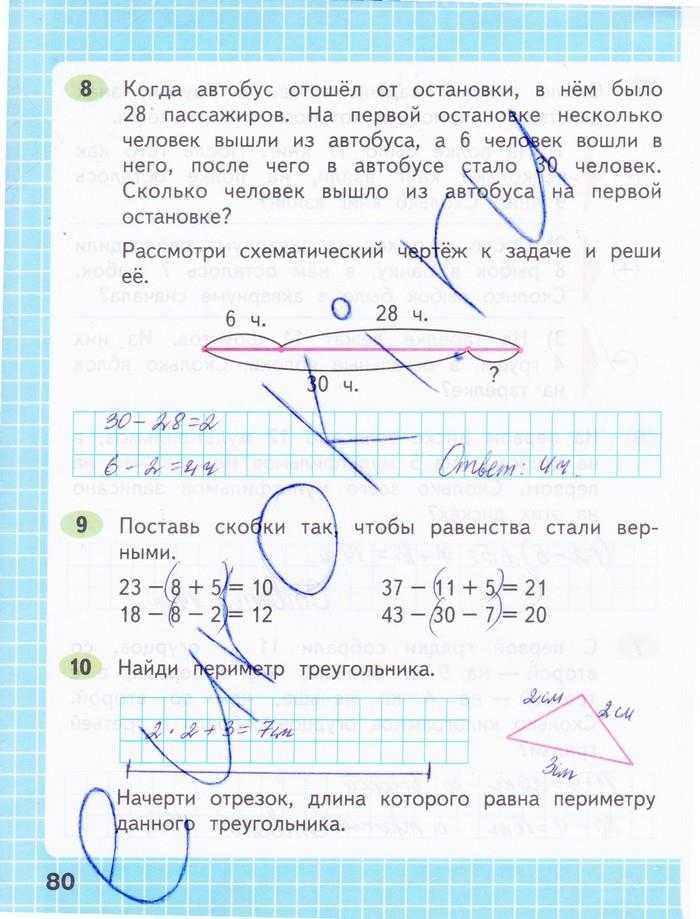 8 Когда автобус отошёл от остановки, в нём было
28 пассажиров. На первой остановке несколько
человек вышли из автобуса, а 6 человек вошли в
него, после чего в автобусе стало 30 человек.
Сколько человек вышло из автобуса на первой
остановке?
Рассмотри схематический чертёж к задаче и реши
её.
6 ч. 28 ч.
30 ч. ?
30 - 28 = 2
6 - 2 = 4 ч Ответ: 4 ч.
9 Поставь скобки так, чтобы равенства стали вер-
ными.
23 - (8 + 5) = 10 37 - (11 + 5) = 21
18 - (8 - 2) = 12 43 - (30 - 7) = 20
10 Найди периметр треугольника.
2 см 2 см
2 · 2 + 3 = 7 см
3 см
Начерти отрезок, длина которого равна периметру
данного треугольника.
80